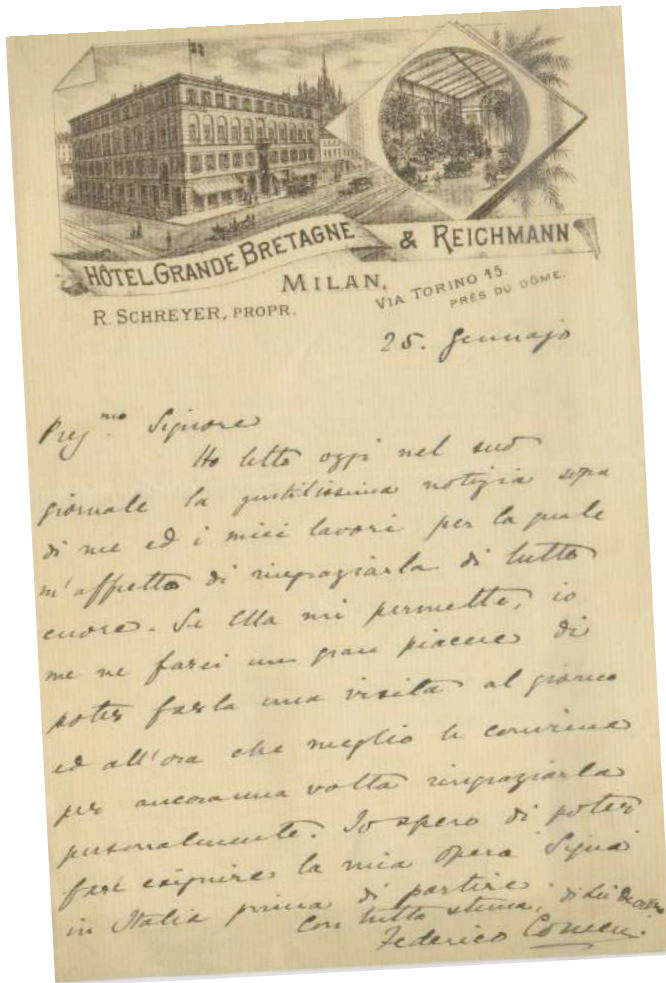 HÔTEL GRANDE BRETAGNE & REICHMANN
MILAN,
R. SCHREYER, PROPR.
VIA TORINO 45.
PRÈS DU DÔME.
25. Gennajo
Preg.mo Signore
Ho letto oggi nel suo
giornale la gentilissima notizia sopra
di me ed i miei lavori per la quale
m'affretto di ringraziarla di tutto
cuore. Se Ella mi permette, io
me ne farei un gran piacere di
poter farla una visita al giorno
ed all'ora che meglio le conviene
per ancora una volta ringraziarla
personalmente. Io spero di poter
fare eseguire la mia opera Signa
in Italia prima di partire.
Con tutta stima, di Lei
Federico Cowen.